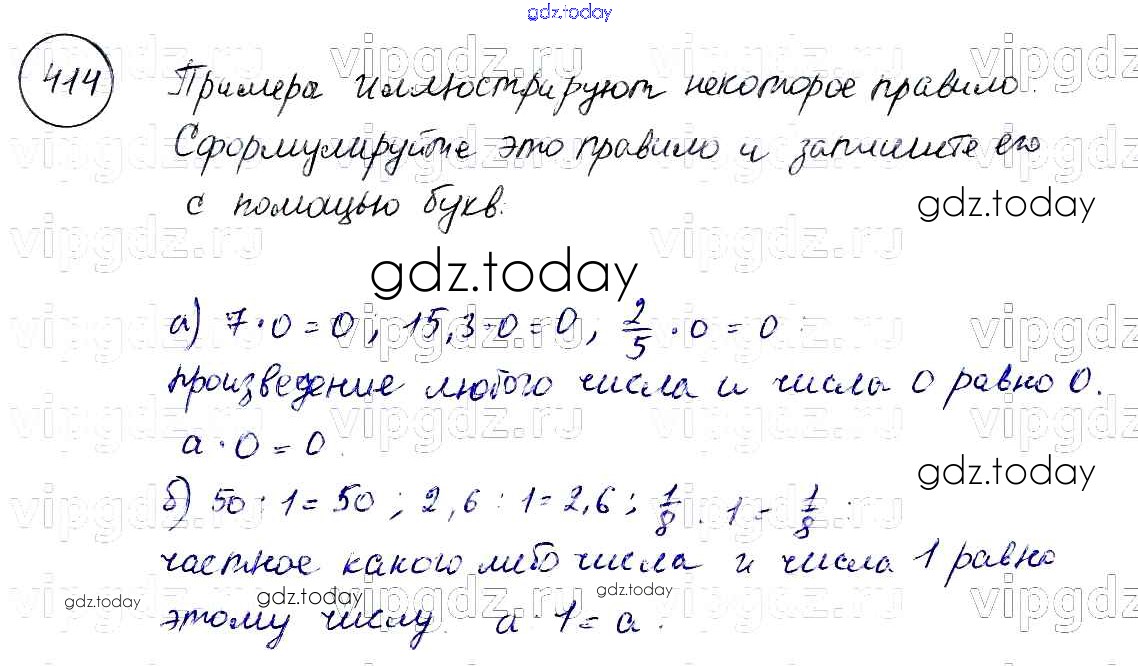 gdz.today
414
Примера иллюстрируют некоторое правило.
Сформулируйте это правило и запишите его
с помощью букв.
gdz.today
gdz.today
а) 7·0=0, 15,3·0=0, 2/5·0=0
произведение любого числа и числа 0 равно 0.
а·0=0.
gdz.today
б) 50:1=50; 2,6:1=2,6; 1/8:1=1/8
частное какого либо числа и числа 1 равно
gdz.today
gdz.today
gdz.today
этому числу. а:1=а.
vipgdz.ru